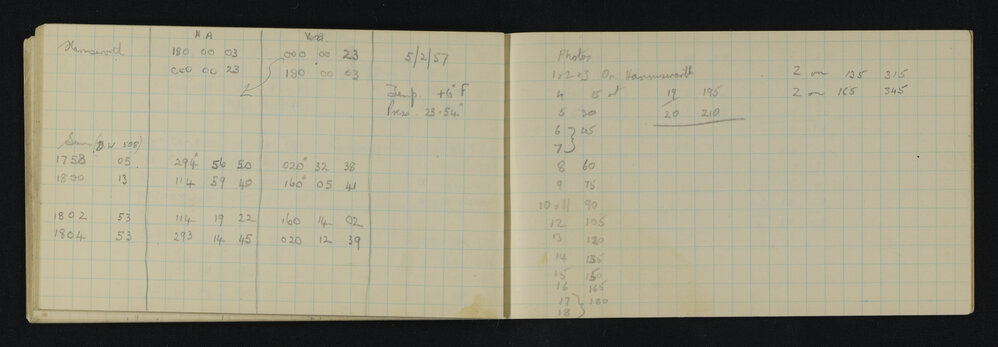 H A Vert.
Harmsworth 180 00 03 000 00 23 5/2/57
000 00 23 180 00 03
Temp. +6° F
Press. 23.54"
Sun
1758 05 294° 56 50 020° 32 38
1800 13 114 59 40 160° 05 41
1802 53 114 19 22 160 14 02
1804 53 293 14 45 020 12 39
Photos
1, 2 + 3 On Harmsworth 2 on 135 315
4 15 at 19 195 2 on 165 345
5 30 20 210
6 45
7
8 60
9 75
10 + 11 90
12 105
13 120
14 135
15 150
16 165
17 180
18